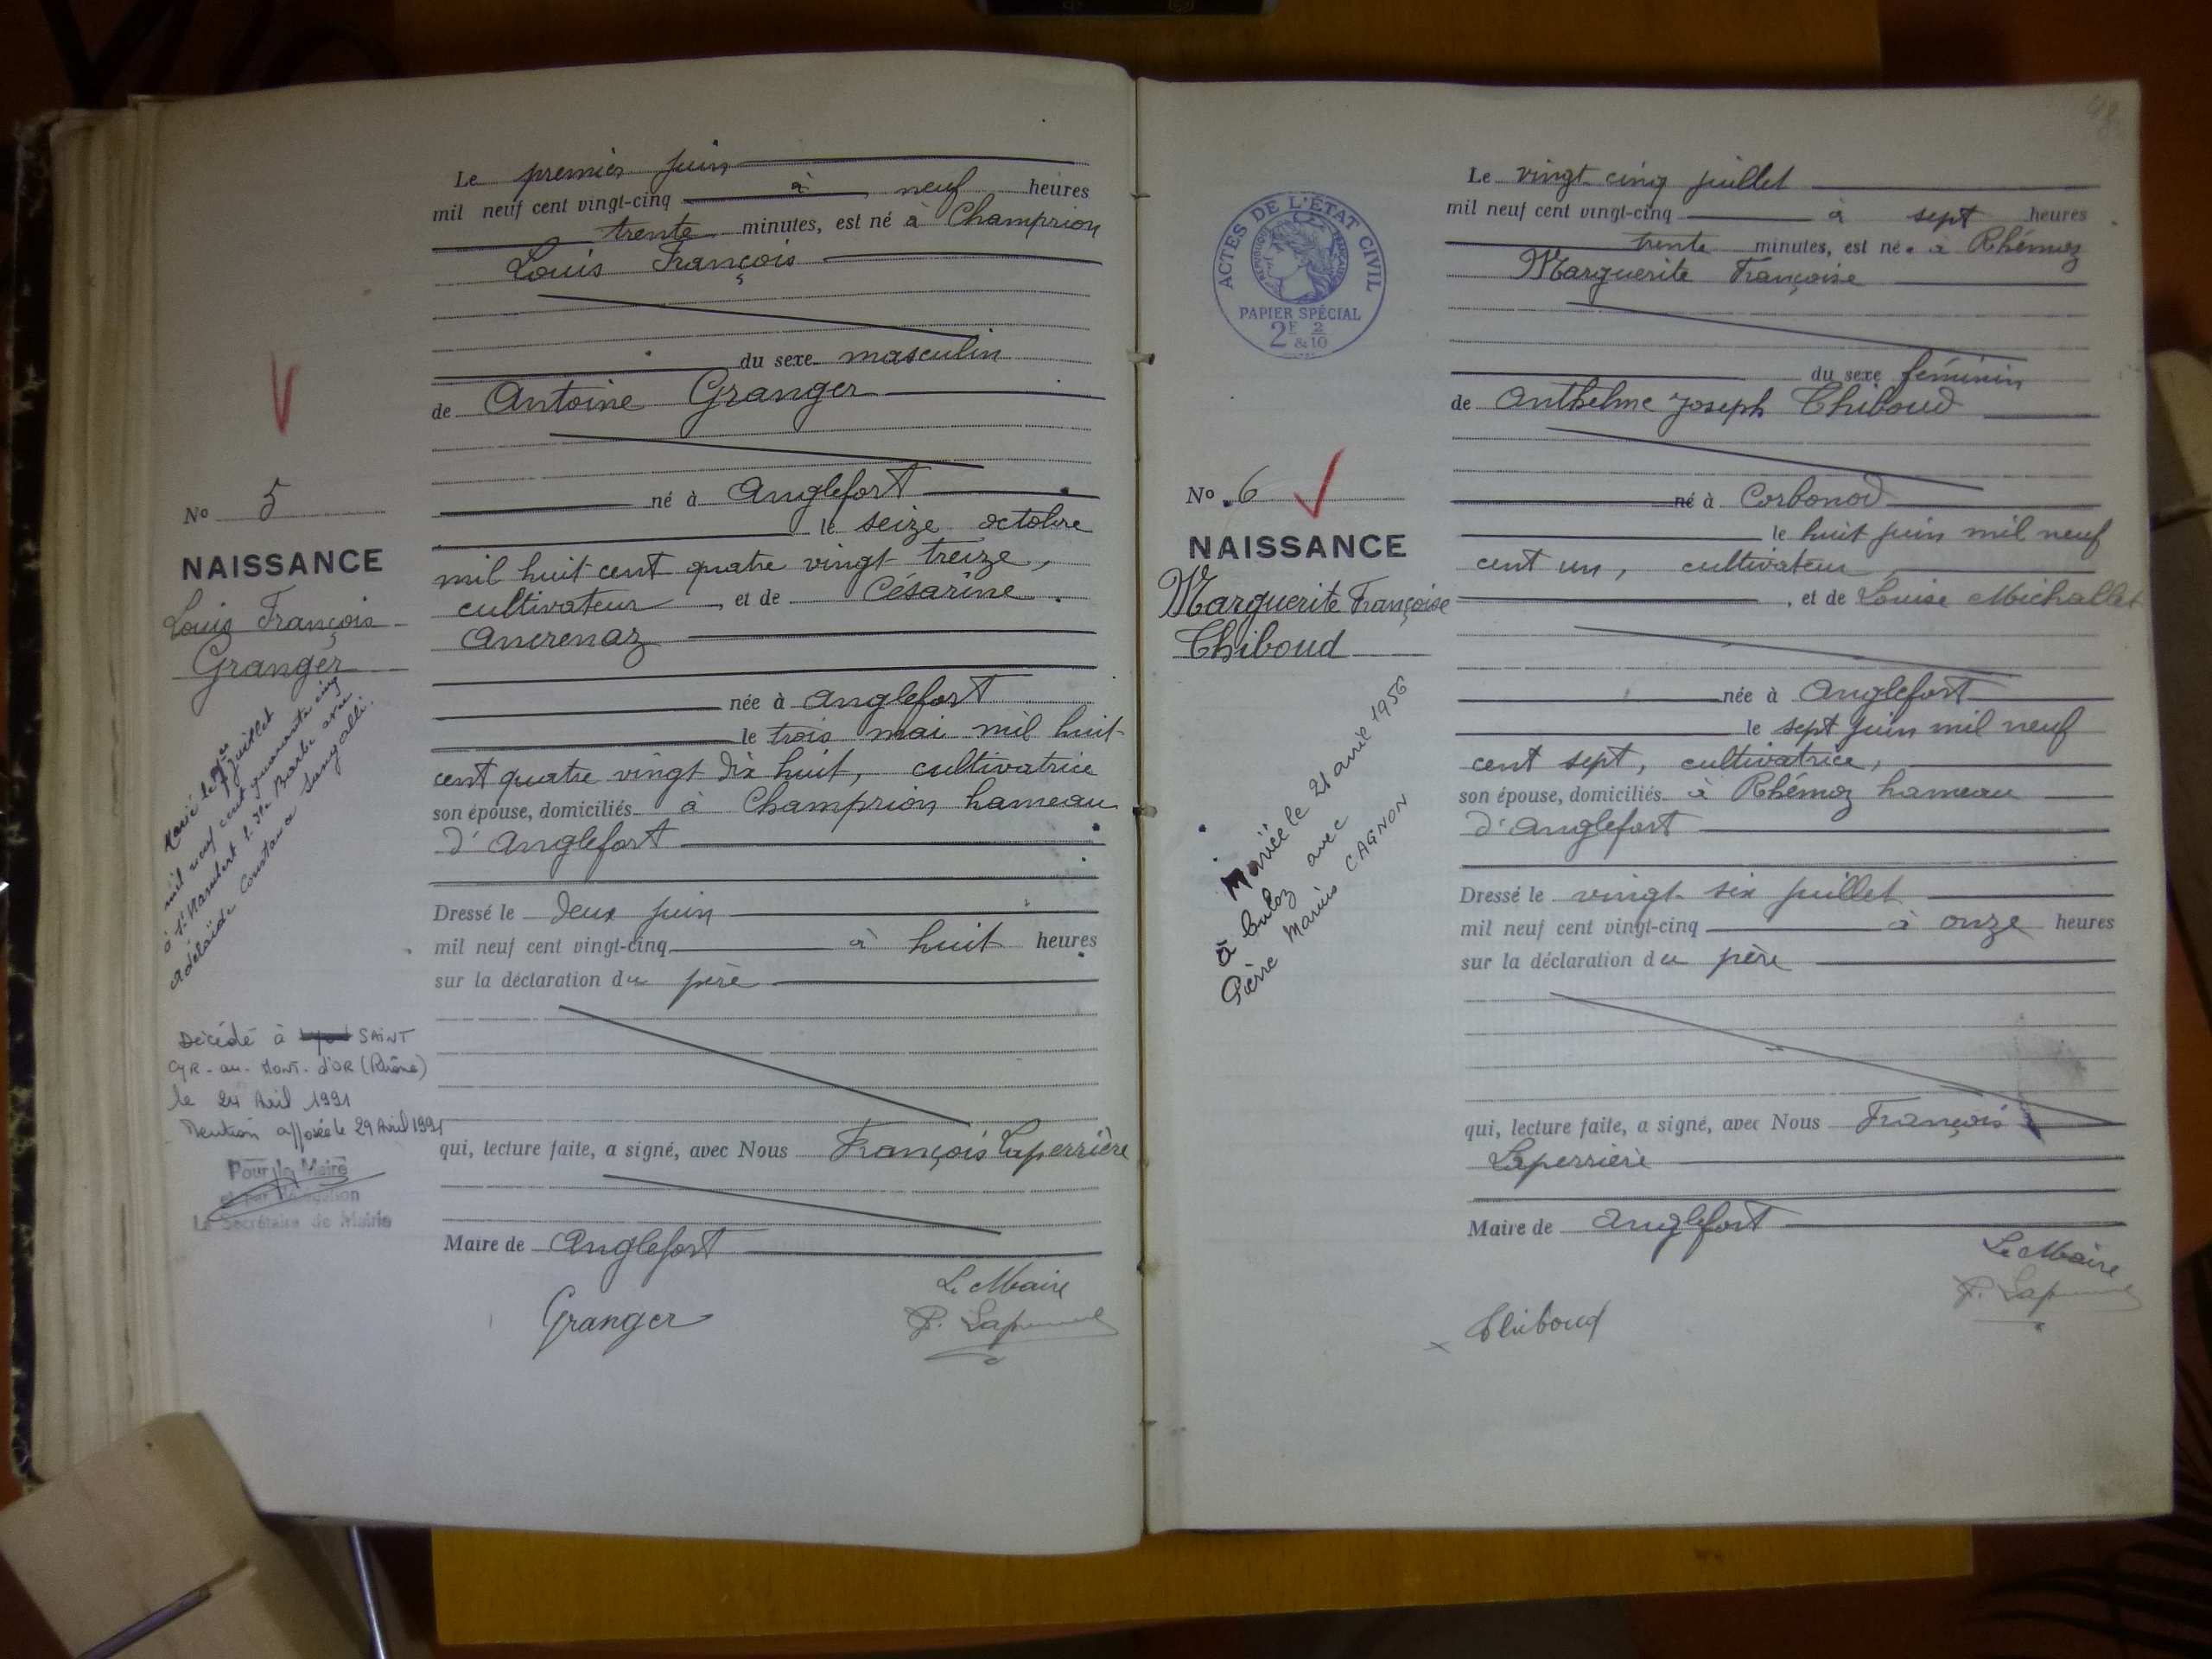 Le premier juin
mil neuf cent vingt-cinq à neuf heures
trente minutes, est né à Champrion
Louis François
du sexe masculin
de Antoine Granger
né à Anglefort
le seize octobre
mil huit cent quatre vingt treize,
cultivateur, et de Césarine
Ancrenaz
née à Anglefort
le trois mai mil huit
cent quatre vingt dix huit, cultivatrice
son épouse, domiciliés à Champrion hameau
d'Anglefort
Dressé le deux juin
mil neuf cent vingt-cinq à huit heures
sur la déclaration du père
qui, lecture faite, a signé, avec Nous François Laperrière
Maire de Anglefort
Le Maire
Granger
No 5
NAISSANCE
Louis François
Granger
Marié le juillet
mil neuf cent quarante cinq
à St Rambert l'Ile Barbe avec
Adélaïde Constance Sangalli.
Décédé à SAINT
CYR-au-MONT-d'OR (Rhône)
le 24 Avril 1991
Mention apposée le 29 Avril 1991
Pour le Maire
et par délégation
Le Secrétaire de Mairie
48
ACTES DE L'ÉTAT CIVIL
RÉPUBLIQUE FRANÇAISE
PAPIER SPÉCIAL
2F & 2/10
Le vingt cinq juillet
mil neuf cent vingt-cinq à sept heures
trente minutes, est née à Rhémoz
Marguerite Françoise
du sexe féminin
de Anthelme Joseph Thiboud
né à Corbonod
le huit juin mil neuf
cent un, cultivateur
, et de Louise Michallet
née à Anglefort
le sept juin mil neuf
cent sept, cultivatrice,
son épouse, domiciliés à Rhémoz hameau
d'Anglefort
Dressé le vingt-six juillet
mil neuf cent vingt-cinq à onze heures
sur la déclaration du père
qui, lecture faite, a signé, avec Nous François
Laperrière
Maire de Anglefort
Le Maire
Thiboud
No 6
NAISSANCE
Marguerite Françoise
Thiboud
Mariée le 21 avril 1956
à Culoz avec
Pierre Marius CAGNON